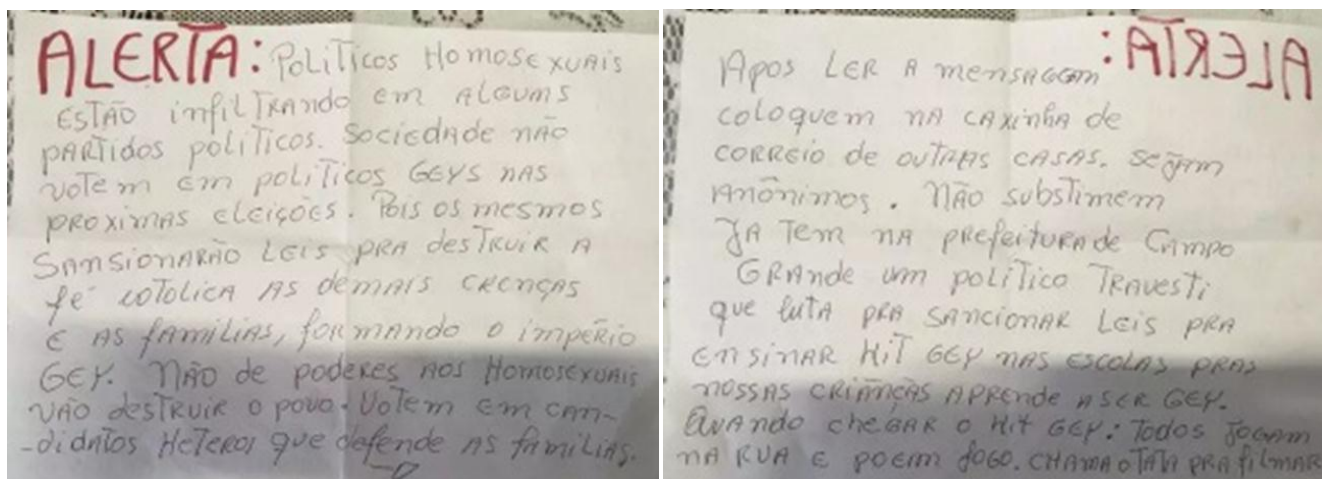 ALERTA: POLÍTICOS HOMOSEXUAIS
ESTÃO infiLTRANDO em ALGUMS
PARTIDOS POLÍTICOS. SOCIEDADE NÃO
VOTEM Em POLÍTICOS GEYS NAS
PROXIMAS ELEIÇÕES. POIS OS mesmos
SANSIONARÃO LEIS PRA desTRUIR A
fé COTOLICA AS demais CRENÇAS
E AS famílias, formando o império
GEY. NÃO de poderes AOS HomosEXUAIS
VÃO desTRUIR o povo. Votem Em CAN-
-didatos HETEROS que defende AS famílias.
ALERTA:
Apos LER A mensagem
coloquem NA CAXINHA de
CORREIO de OUTRAS CASAS. Sejam
ANÔNIMOS. NÃO substimem
JA Tem NA PREfeiturA de CAMPO
GRANDE um político TRAVESTI
que luta PRA SANCIONAR LEIS PRA
ENSINAR HIT GEY NAS ESCOLAS PRAS
NOSSAS CRIANÇAS APRENDE A SER GEY.
QUANDO CHEGAR O HIT GEY: TODOS JOGAM
NA RUA E POEM FOGO. CHAMA O TATA PRA filmar